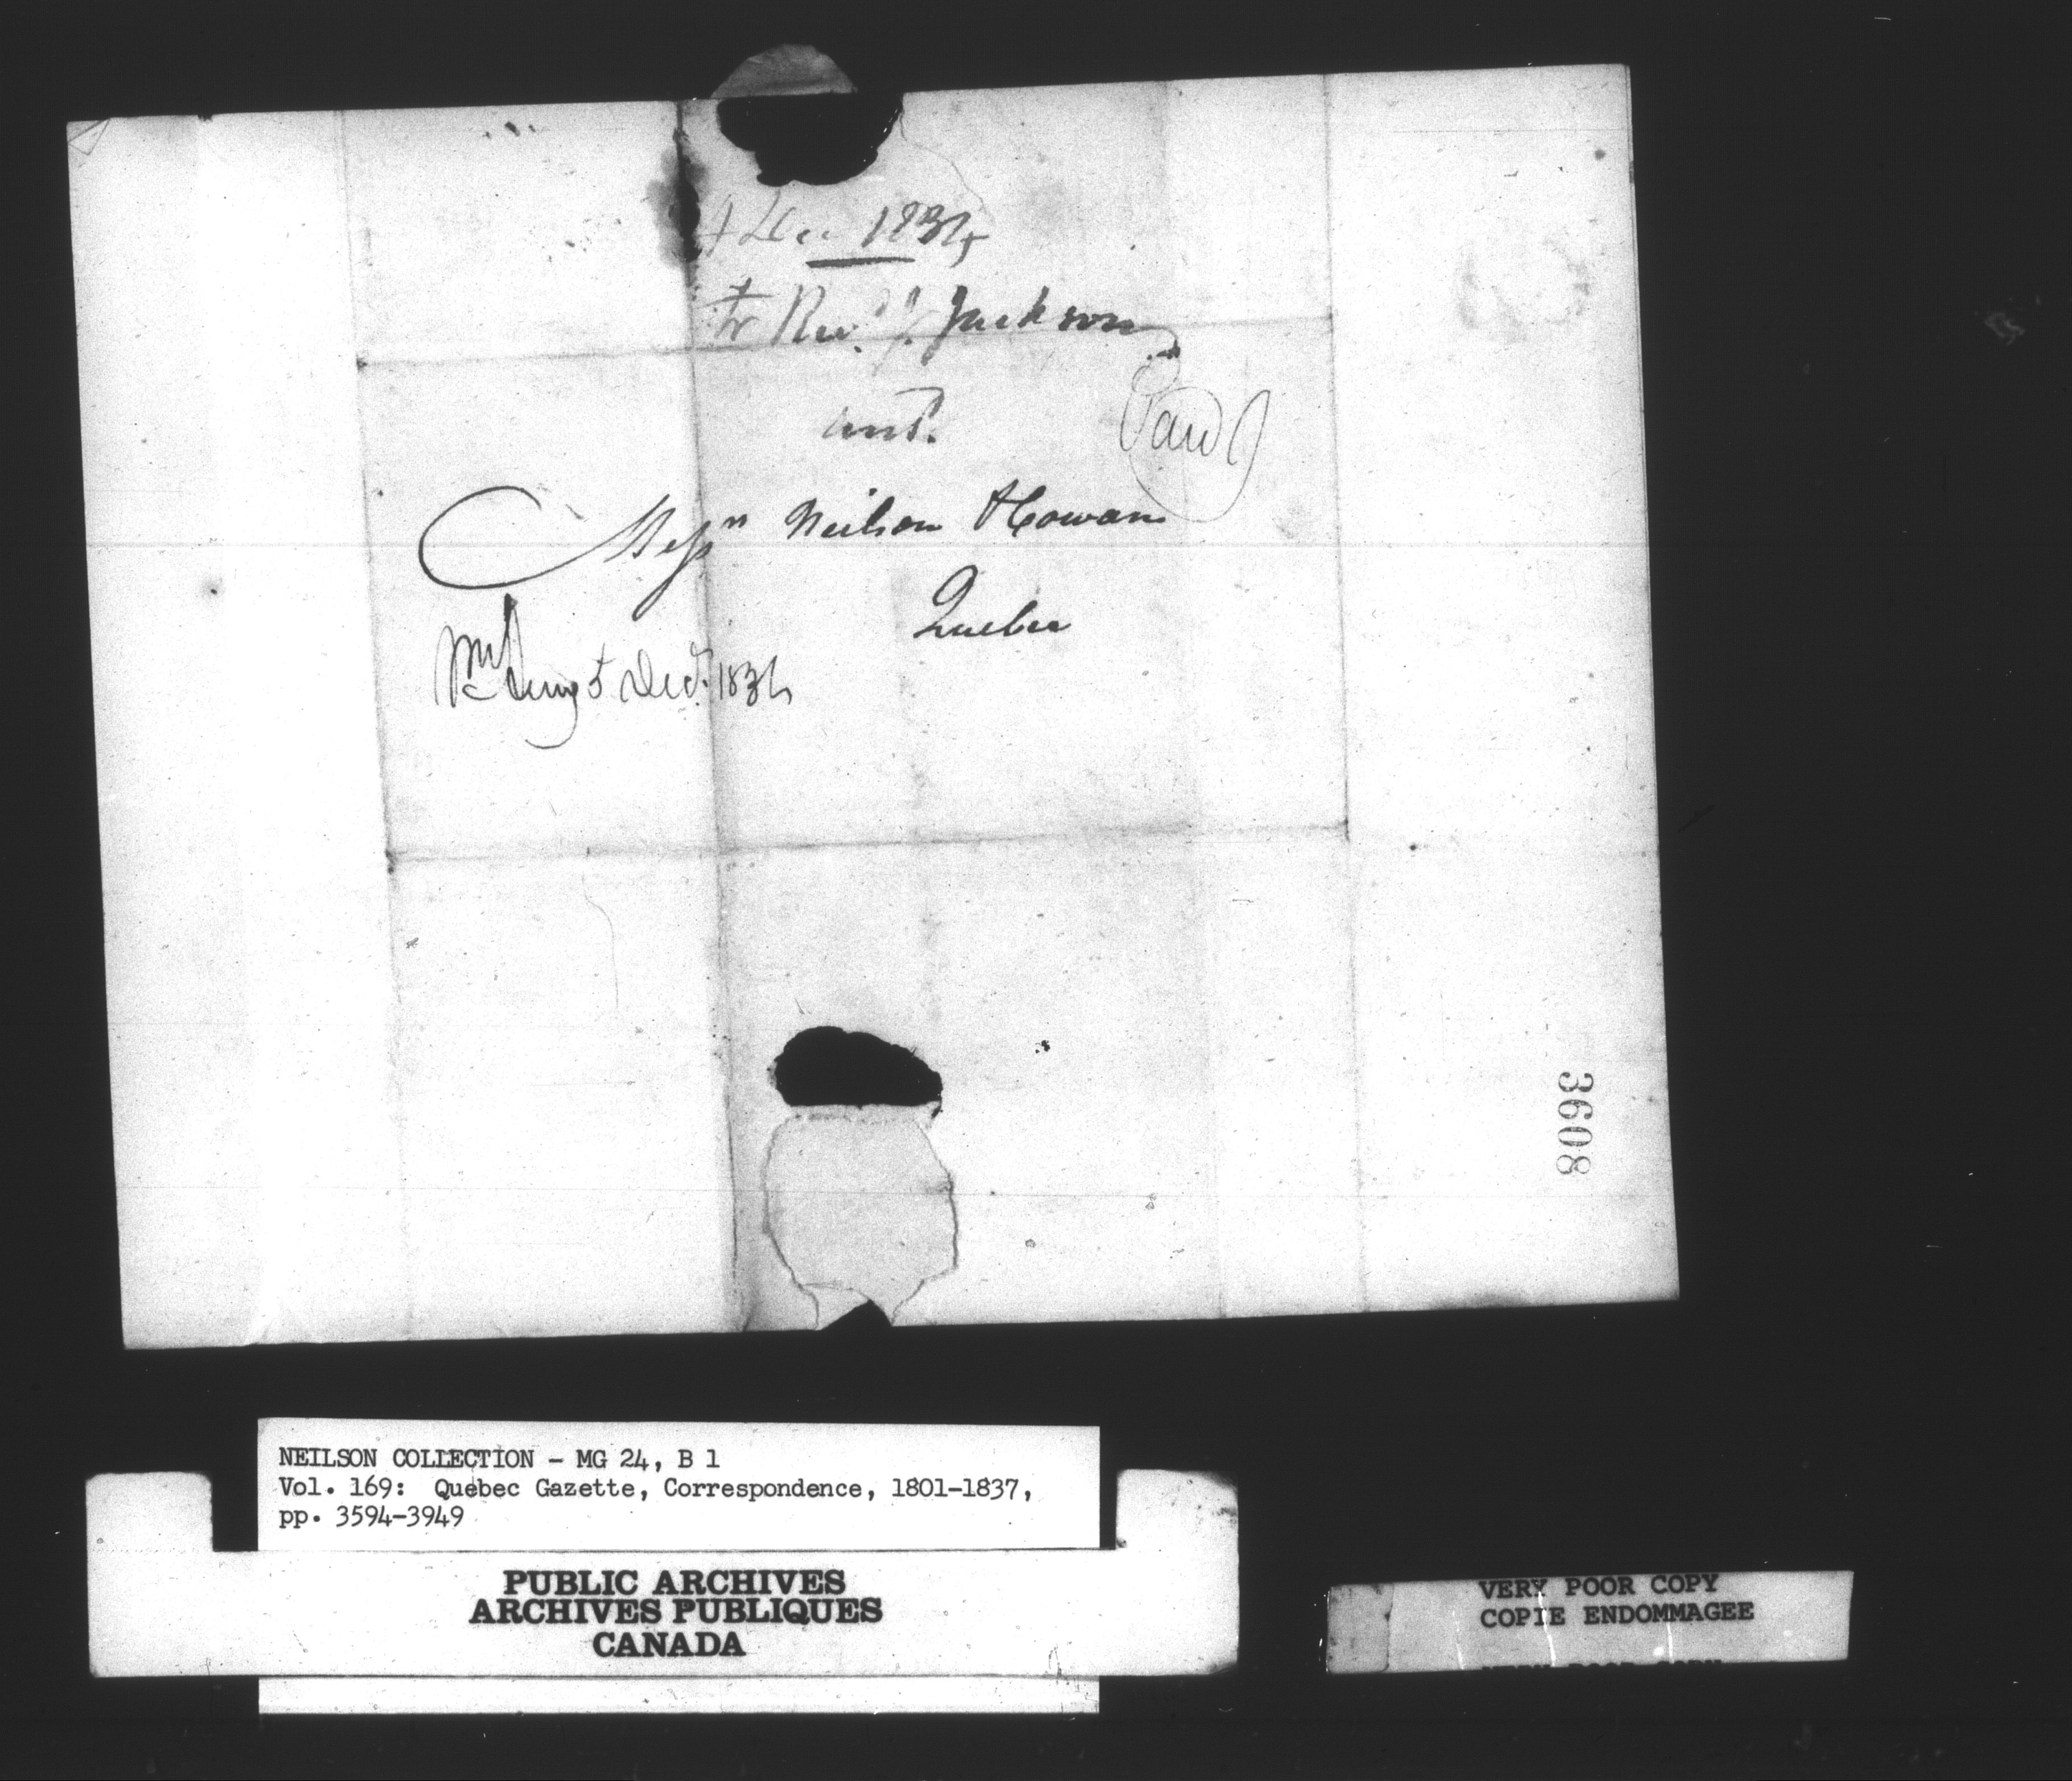 4 Dec 1834
fr Revd J. Jackson
ansd.
Paid
Messrs Neilson & Cowan
Quebec
5 Decr. 1834
3608
NEILSON COLLECTION - MG 24, B 1
Vol. 169: Quebec Gazette, Correspondence, 1801-1837,
pp. 3594-3949
PUBLIC ARCHIVES
ARCHIVES PUBLIQUES
CANADA
VERY POOR COPY
COPIE ENDOMMAGEE
VERY POOR COPY